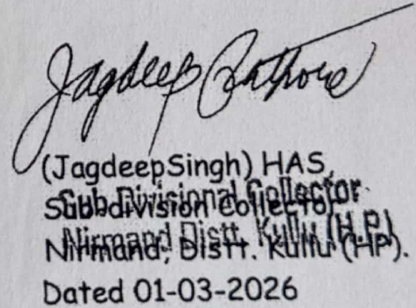 Jagdeep Rathore
(JagdeepSingh) HAS,
Sub Divisional Collector
Subdivision Collector
Nirmand Distt. Kullu (H.P.)
Nirmand, Distt. Kullu (HP).
Dated 01-03-2026